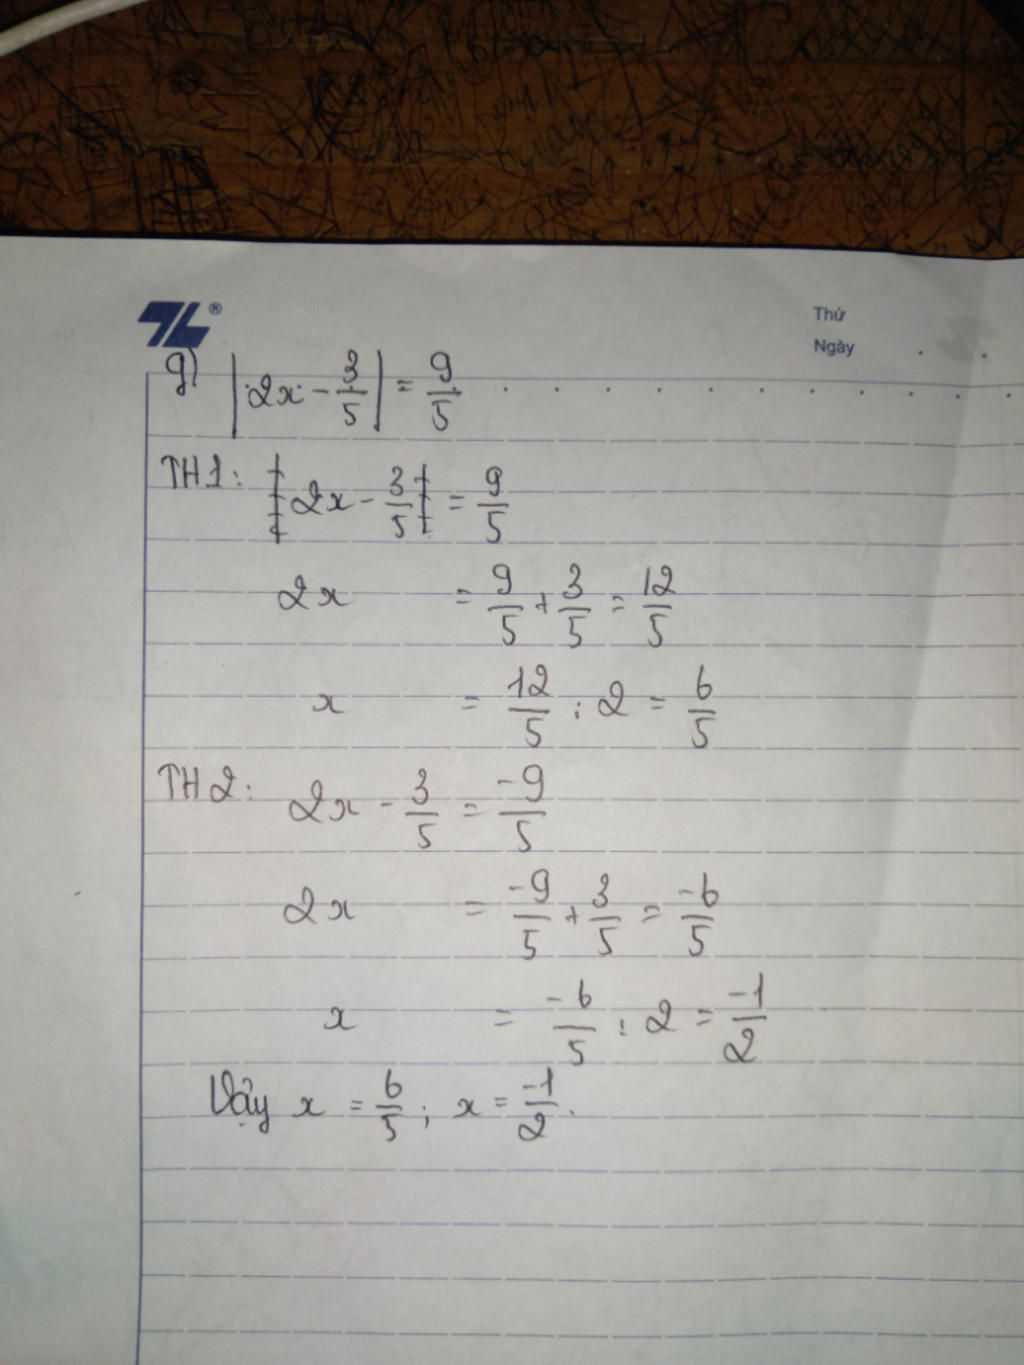 TL®
Thứ
Ngày
g) |2x - 3/5| = 9/5
TH1: 2x - 3/5 = 9/5
2x = 9/5 + 3/5 = 12/5
x = 12/5 : 2 = 6/5
TH2: 2x - 3/5 = -9/5
2x = -9/5 + 3/5 = -6/5
x = -6/5 : 2 = -1/2
Vậy x = 6/5; x = -1/2.